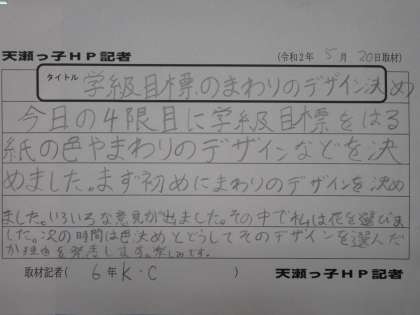 天瀬っ子HP記者
(令和2年 5月 20日取材)
タイトル 学級目標のまわりのデザイン決め
今日の4限目に学級目標をはる
紙の色やまわりのデザインなどを決
めました。まず初めにまわりのデザインを決め
ました。いろいろな意見が出ました。その中で私は花を選びま
した。次の時間は色決めとどうしてそのデザインを選んだ
か理由を発表します。楽しみです。
取材記者( 6年 K・C )
天瀬っ子HP記者